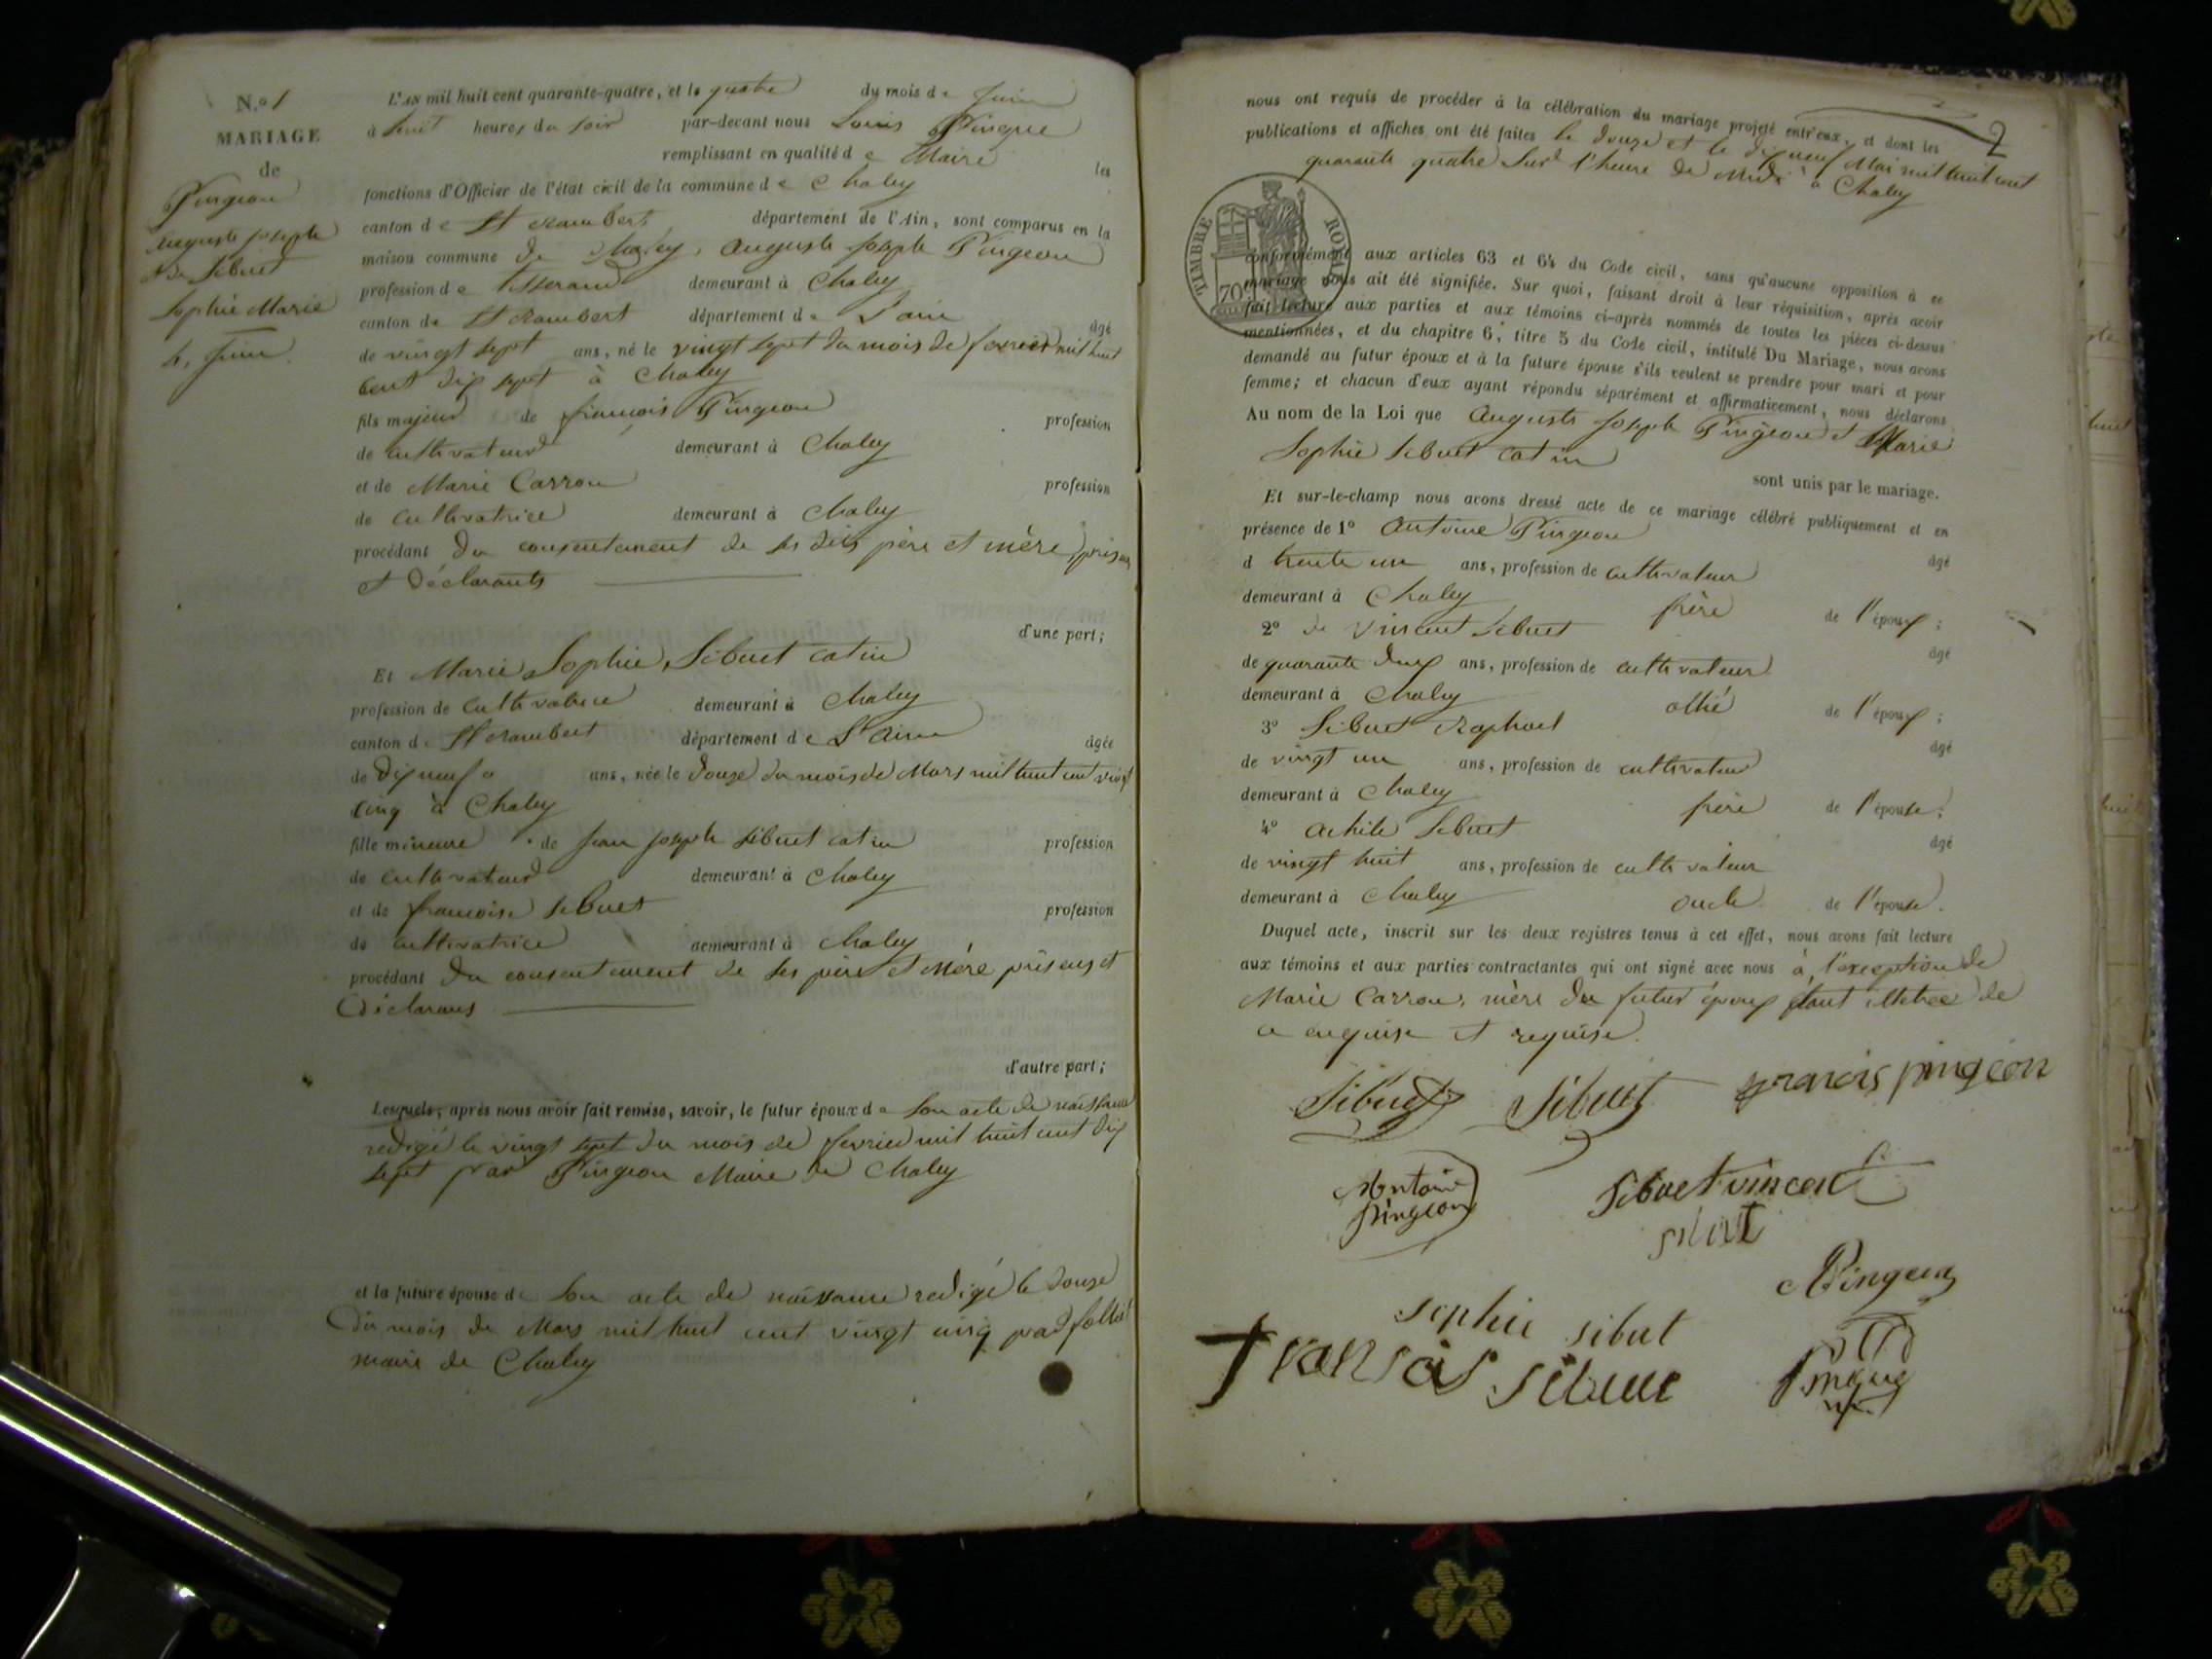 N.º 1
MARIAGE
de
Pingeon
Auguste joseph
& de Sibuet
Sophie Marie
4. Juin
L'AN mil huit cent quarante-quatre, et le quatre du mois de Juin
à huit heures du soir par-devant nous Louis Pingue
remplissant en qualité de Maire les
fonctions d'Officier de l'état civil de la commune de Chaley
canton de St rambert département de l'Ain, sont comparus en la
maison commune de Chaley, auguste joseph Pingeon
profession de tisserand demeurant à Chaley
canton de St rambert département de L'ain âgé
de vingt sept ans, né le vingt sept du mois de fevrier mil huit
cent dix sept à Chaley
fils majeur de françois Pingeon profession
de cultivateur demeurant à Chaley
et de Marie Carron profession
de cultivatrice demeurant à Chaley
procédant du consentement de ses dits père et mère, présens
et déclarants
d'une part;
Et Marie Sophie Sibuet catin
profession de cultivatrice demeurant à Chaley
canton de St rambert département de L'Ain âgée
de dix neuf ans, née le douze du mois de Mars mil huit cent vingt
cinq à Chaley
fille mineure de jean joseph sibuet catin profession
de cultivateur demeurant à Chaley
et de françoise sibuet profession
de cultivatrice demeurant à Chaley
procédant du consentement de ses père et Mère présens et
déclarans
d'autre part;
Lesquels, après nous avoir fait remise, savoir, le futur époux de son acte de naissance
redigé le vingt sept du mois de fevrier mil huit cent dix
sept par Pingeon Maire de Chaley
et la future épouse de son acte de naissance redigé le douze
du mois de Mars mil huit cent vingt cinq par
maire de Chaley
2
nous ont requis de procéder à la célébration du mariage projeté entr'eux, et dont les
publications et affiches ont été faites le douze et le dix neuf Mai mil huit cent
quarante quatre sur l'heure de Midi à Chaley
TIMBRE ROYAL
70
conformément aux articles 63 et 64 du Code civil, sans qu'aucune opposition à ce
mariage nous ait été signifiée. Sur quoi, faisant droit à leur réquisition, après avoir
fait lecture aux parties et aux témoins ci-après nommés de toutes les pièces ci-dessus
mentionnées, et du chapitre 6, titre 5 du Code civil, intitulé Du Mariage, nous avons
demandé au futur époux et à la future épouse s'ils veulent se prendre pour mari et pour
femme; et chacun d'eux ayant répondu séparément et affirmativement, nous déclarons
Au nom de la Loi que auguste joseph Pingeon et Marie
Sophie Sibuet catin
sont unis par le mariage.
Et sur-le-champ nous avons dressé acte de ce mariage célébré publiquement et en
présence de 1º Antoine Pingeon âgé
d trente un ans, profession de cultivateur
demeurant à Chaley frère de l'époux;
2º de vincent sibuet âgé
de quarante deux ans, profession de cultivateur
demeurant à Chaley allié de l'époux;
3º Sibuet raphael âgé
de vingt un ans, profession de cultivateur
demeurant à Chaley frère de l'épouse;
4º achile sibuet âgé
de vingt huit ans, profession de cultivateur
demeurant à Chaley oncle de l'épouse.
Duquel acte, inscrit sur les deux registres tenus à cet effet, nous avons fait lecture
aux témoins et aux parties contractantes qui ont signé avec nous à l'exception de
Marie Carron, mère du futur époux étant illetree de
ce enquise et requise.
Sibuet Sibuet francois pingeon
Antoine
pingeon
Sibuet vincent
sibut
Pingeon
sophie sibut
fransois sibuet
Pingue